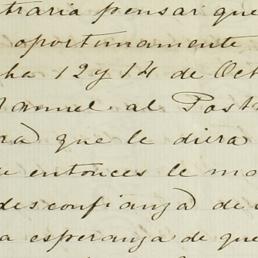 traria pensar que
oportunamente
ha 12 y 14 de Oct
Manuel al Post
ra que le diera
e entonces le mo
desconfianza de
a esperanza de que